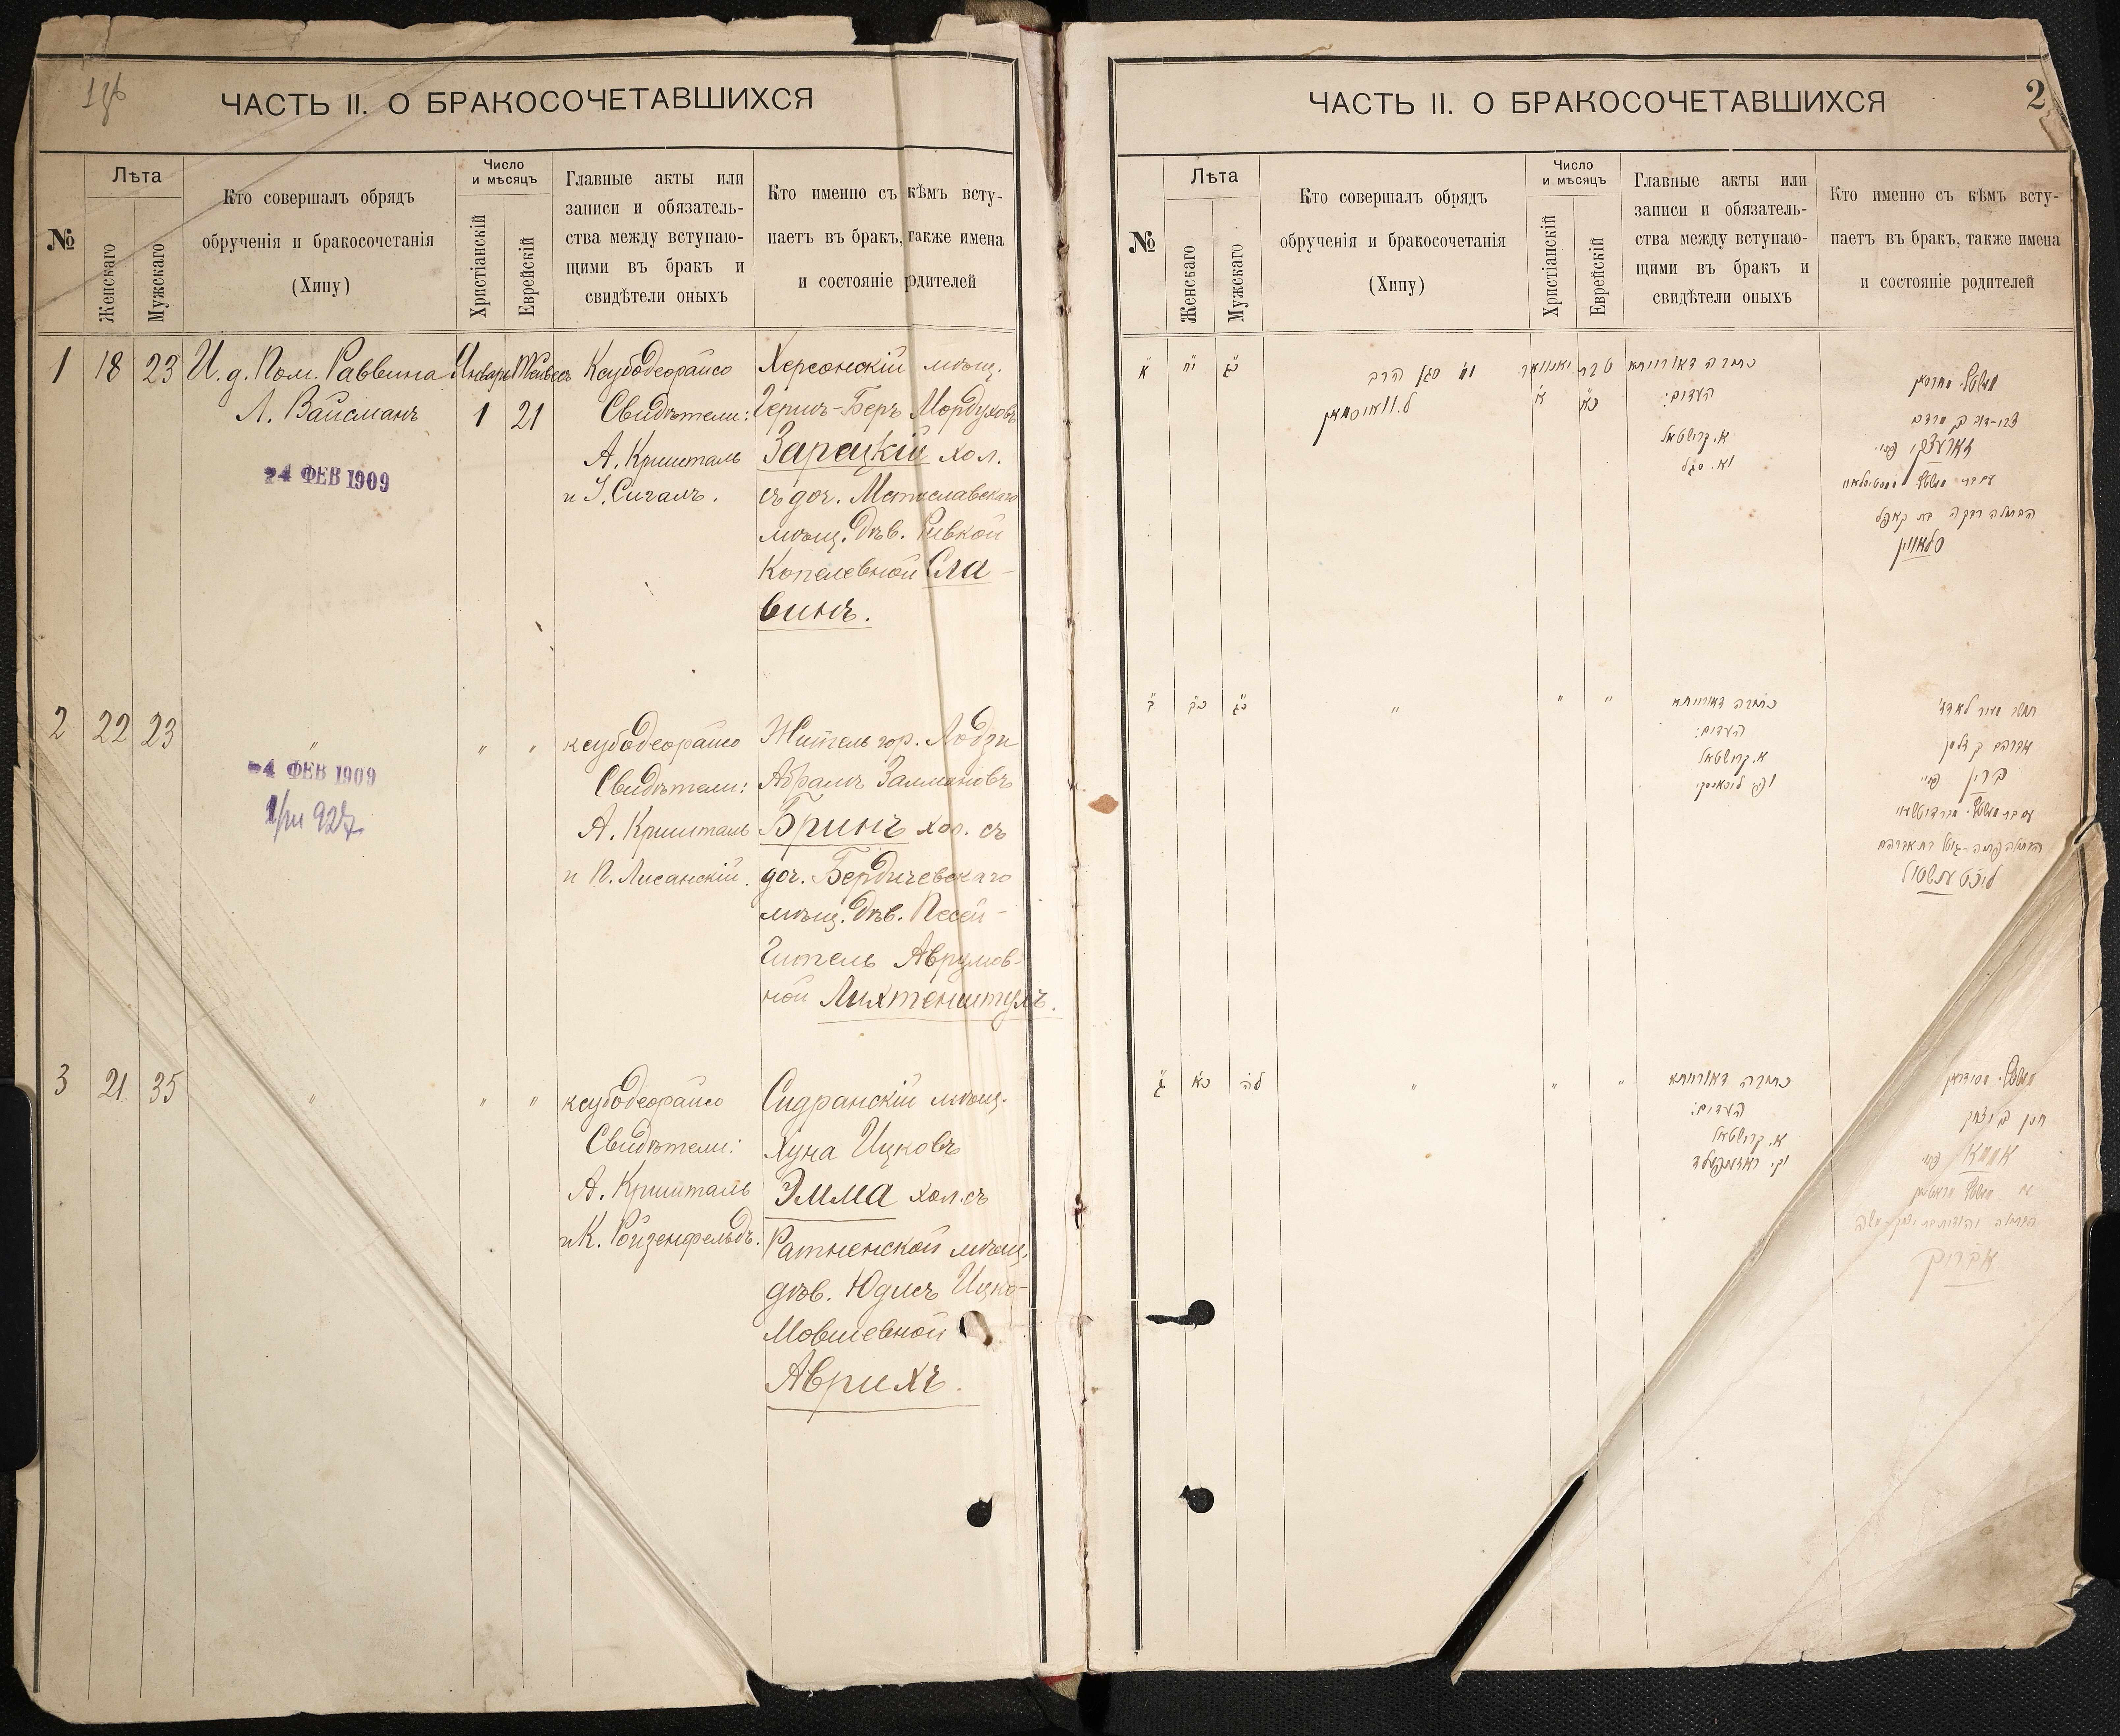 ЧАСТЬ II. О БРАКОСОЧЕТАВШИХСЯ
№
Лѣта
Женскаго
Мужскаго
Кто совершалъ обрядъ
обрученія и бракосочетанія
(Хипу)
Число
и мѣсяцъ
Христіанскій
Еврейскій
Главные акты или
записи и обязатель-
ства между вступаю-
щими въ бракъ и
свидѣтели оныхъ
Кто именно съ кѣмъ всту-
паетъ въ бракъ, также имена
и состояніе родителей
1
18
23
И. д. Пом. Раввина
Л. Вайсманъ
4 ФЕВ 1909
Январь
1
21
Ксубодеорайсо
Свидѣтели:
А. Кришталь
и І. Сигалъ.
Херсонскій мѣщ.
Гершъ-Беръ Мордуховъ
Зарецкій хол.
съ доч. Мстиславскаго
мѣщ. дѣв. Ривкой
Копелевной Сла-
винъ.
2
22
23
"
4 ФЕВ 1909
"
"
ксубодеорайсо
Свидѣтели:
А. Кришталь
и П. Лисанскій.
Житель гор. Лодзи
Абрамъ Залмановъ
Бринъ хол. съ
доч. Бердичевскаго
мѣщ. дѣв. Песей-
Гитель Аврумов-
ной Лихтенштулъ.
3
21
35
"
"
"
ксубодеорайсо
Свидѣтели:
А. Кришталь
и К. Ройзенфельдъ.
Сидранскій мѣщ.
Хуна Ицковъ
Эмма хол. съ
Ратненской мѣщ.
дѣв. Юдисъ Ицко-
Мовшевной
Аврихъ.
ЧАСТЬ II. О БРАКОСОЧЕТАВШИХСЯ
2
№
Лѣта
Женскаго
Мужскаго
Кто совершалъ обрядъ
обрученія и бракосочетанія
(Хипу)
Число
и мѣсяцъ
Христіанскій
Еврейскій
Главные акты или
записи и обязатель-
ства между вступаю-
щими въ бракъ и
свидѣтели оныхъ
Кто именно съ кѣмъ всту-
паетъ въ бракъ, также имена
и состояніе родителей
א
יח
כג
סגן הרב
ל. ווייסמאן
יאנוואר
א
טבת
כא
כתובה דאורייתא
העדים:
א. קרישטאל
וא. סגל
צבי-דוב בן מרדכי
זארעצקי
הבתולה רבקה בת קאפל
סלאווין
ב
כב
כג
"
"
"
כתובה דאורייתא
העדים:
א. קרישטאל
אברהם בן זלמן
ברין
ג
כא
לה
"
"
"
כתובה דאורייתא
העדים:
א. קרישטאל